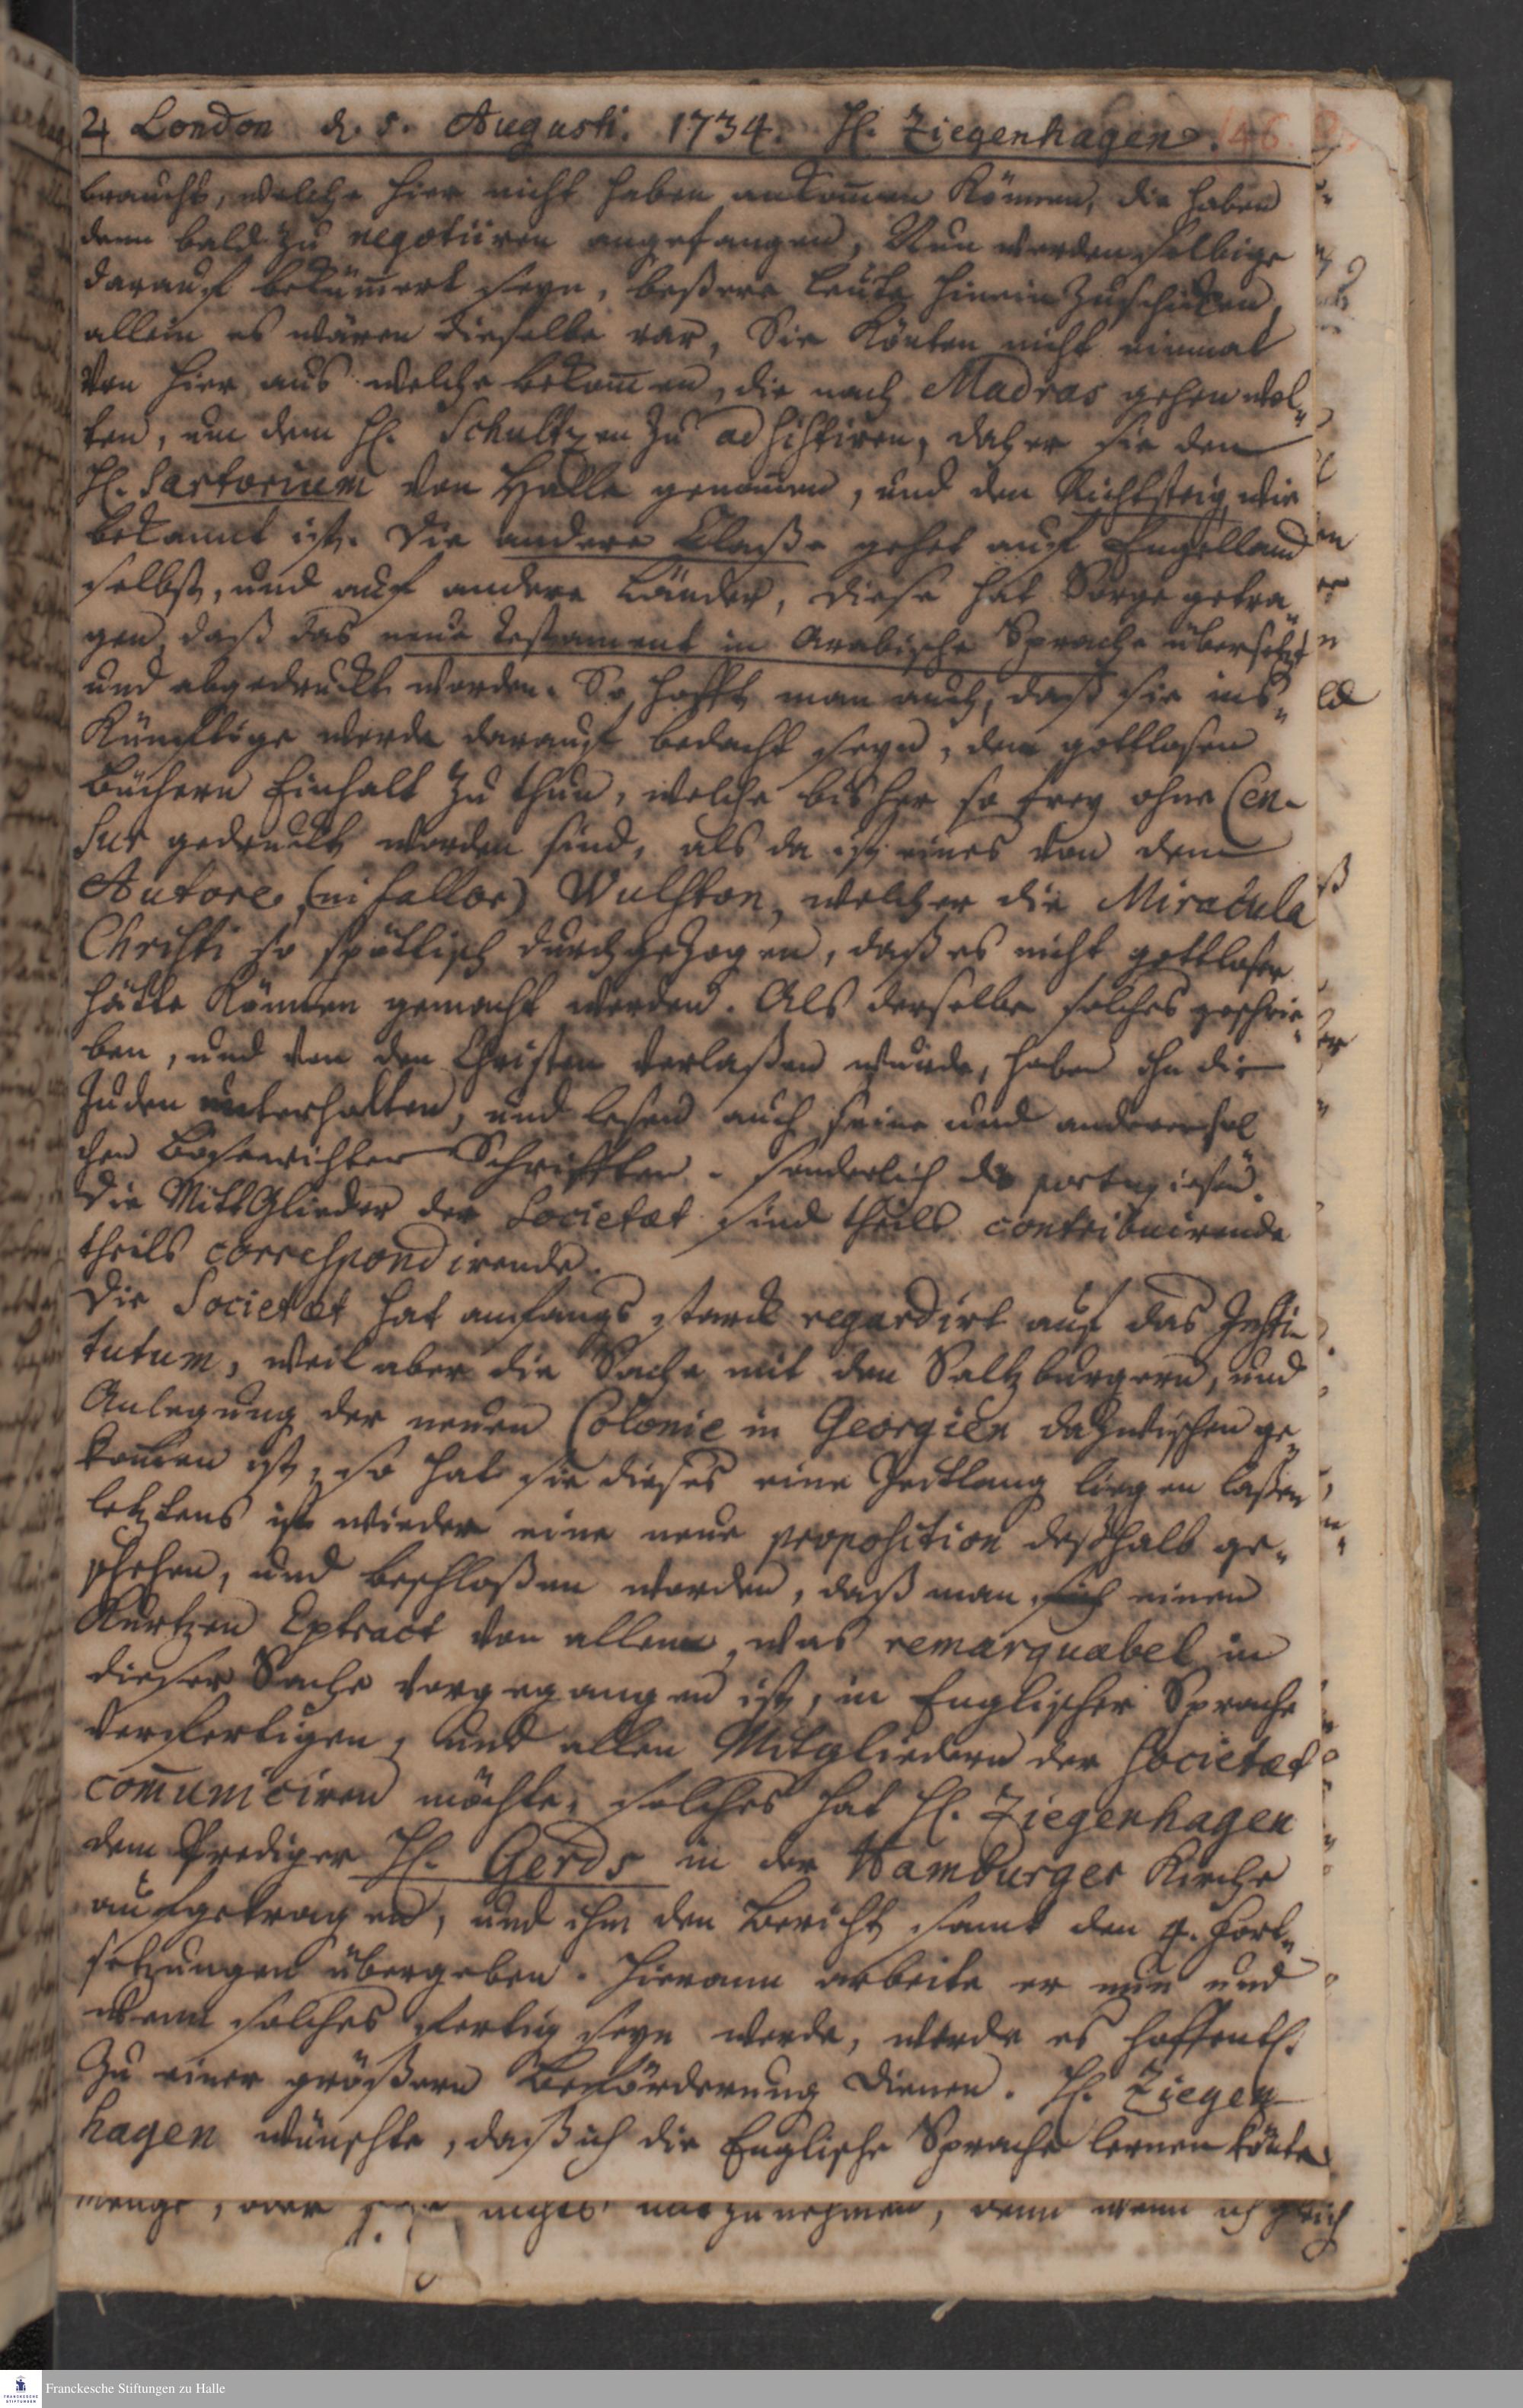 24 London d. 5. Augusti. 1734. H. Ziegenhagen. 146
braucht, welche hier nicht haben ankom̄en können, die haben
denn bald zu negotiiren angefangen, Nun werden selbige
darauf beküm̄ert seyn, beßere Leute hinein zuschicken,
allein es wären dieselbe rar, Sie könten nicht einmal
von hier aus welche bekom̄en, die nach Madras gehen wol„
ten, um dem H. Schultzen zu adsistiren, daher sie den
H. Sartorium von Halle genom̄en, und den Richtsteig, wie
bekannt ist. Die andere Claße gehet auf Engelland
selbst, und auf andere Länder, diese hat Sorge getra„
gen, daß das neue Testament in Arabische Sprache übersetzt
und abgedruckt worden. So hofft man auch, daß sie ins„
künfftige werde darauf bedacht seyn, den gottlosen
Büchern Einhalt zu thun, welche bisher so frey ohne Cen-
sur gedruckt worden sind, als da ist eines von dem
Autore, (ni fallor) Wulston, welcher die Miracula
Christi so spöttisch durchgezogen, daß es nicht gottloser
hätte können gemacht werden. Als derselbe solches geschrie„
ben, und von den Christen verlaßen wurde, haben ihn die
Juden unterhalten, und lesen auch seine und anderer sol
chen Bösewichter Schrifften. sonderlich die portugiesen.
Die MittGlieder der Societæt sind theils contribuirende
theils correspondirende.
Die Societæt hat anfangs starck regardirt auf das Insti-
tutum, weil aber die Sache mit den Saltzburgern, und
Anlegung der neuen Colonie in Georgien dazwischen ge„
kom̄en ist, so hat sie dieses eine Zeitlang liegen laßen
letztens ist wieder eine neue proposition deßhalb ge„
schehen, und beschloßen worden, daß man sich einen
kurtzen Extract von allem, was remarquabel in
dieser Sache vorgegangen ist, in Englischer Sprache
verfertigen, und allen Mitgliedern der Societæt
com̄uniciren möchte, solches hat H. Ziegenhagen
dem Prediger H. Gerds in der Hamburger Kirche
aufgetragen, und ihm den Bericht samt den 4. Fort„
setzungen übergeben. Hieran arbeite er nun und
wenn solches fertig seyn werde, werde es hoffentl.
zu einer größern Beförderung dienen. H. Ziegen
hagen wünschte, daß ich die Englische Sprache lernen könte
menge, oder nichts anzunehmen, denn wenn ich gleich
Franckesche Stiftungen zu Halle